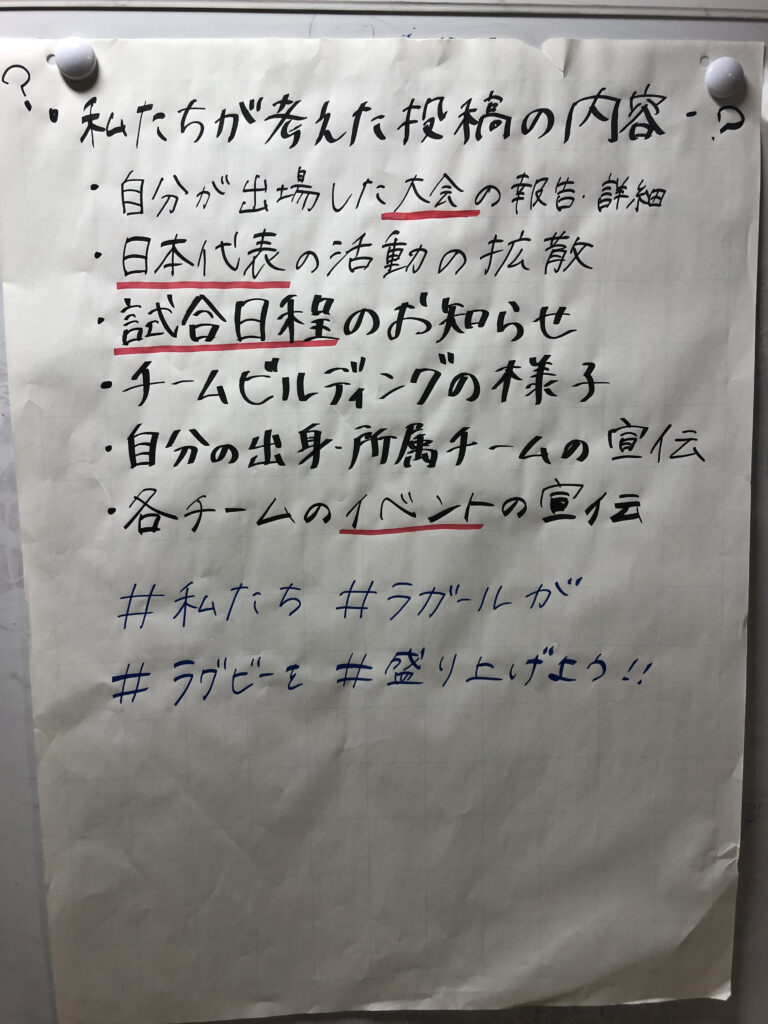 ?・私たちが考えた投稿の内容-?
・自分が出場した大会の報告・詳細
・日本代表の活動の拡散
・試合日程のお知らせ
・チームビルディングの様子
・自分の出身・所属チームの宣伝
・各チームのイベントの宣伝
#私たち #ラガールが
#ラグビーを #盛り上げよう!!